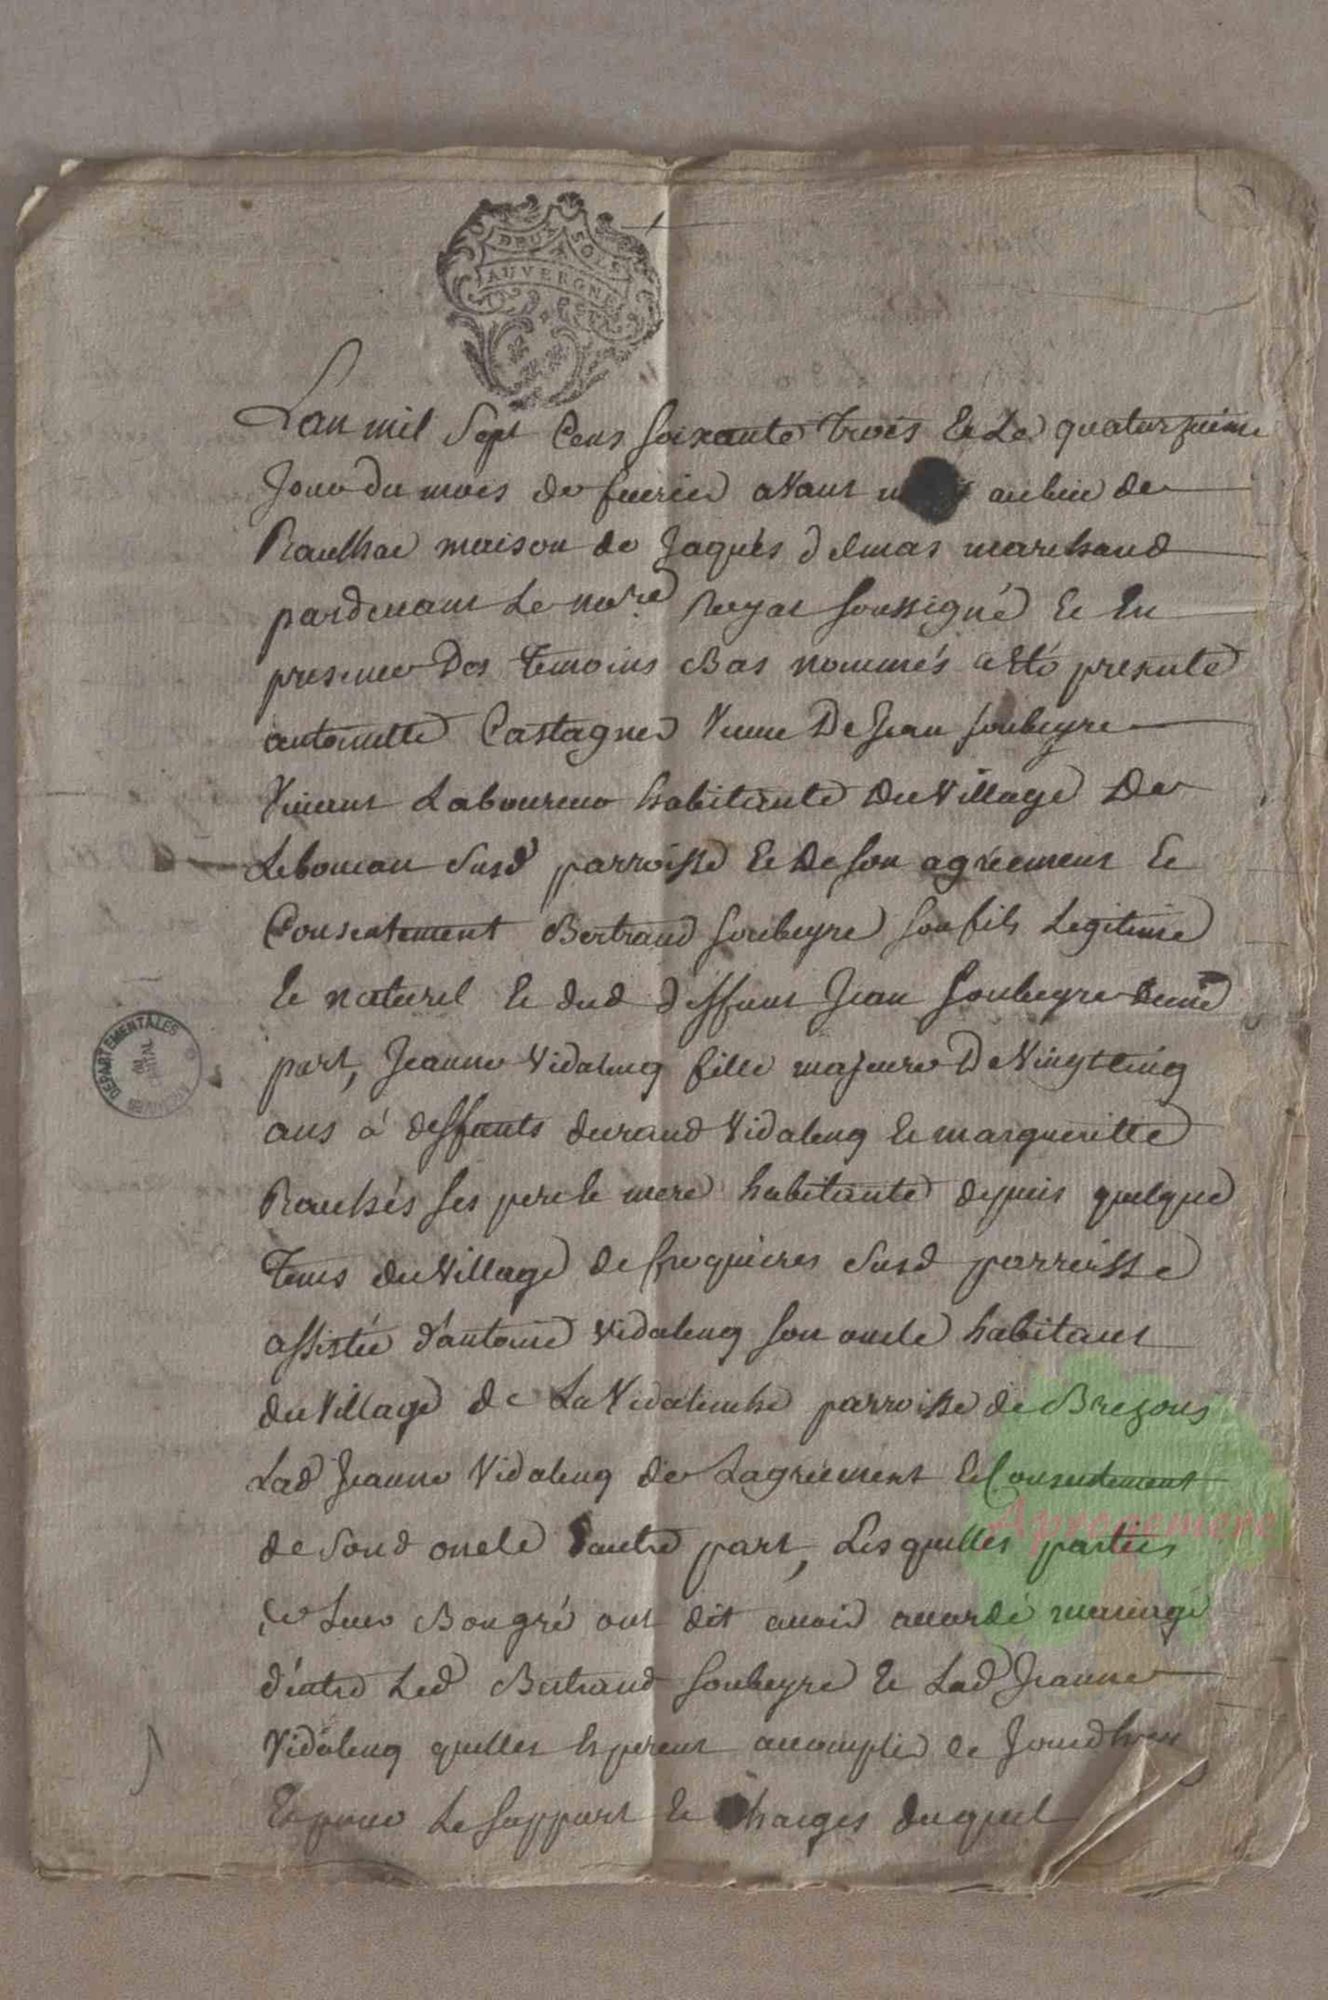 DEUX SOLS
AUVERGNE
Lan mil Sept Cens soixante trois Et Le quatorzieme
Jour du mois de fevrier avant au lieu de
Raulhac maison de Jaques delmas marchand
pardevant Le no.re Royal soussigné Et En
presence Des temoins Bas nommés a Eté presente
antoinette Castagner Veuve De Jean soubeyre
Vivant Laboureur habitante Du Village De
Leboucau Susd parroisse Et De son agreement Et
Consentement Bertrand soubeyre son fils Legitime
Et naturel Et dud deffunt Jean soubeyre dune
part, Jeanne Vidalenq fille majeure De Vingt Cinq
ans a deffunts durand Vidalenq Et margueritte
Raulhés ses pere Et mere habitante depuis quelque
tems du Village de froquieres Susd parroisse
assistée d'antoine Vidalenq son oncle habitant
du Village de La Vidalenche parroisse de Brezons
Lad Jeanne Vidalenq de Lagreement Et Consentement
de Sond oncle dautre part, Lesquelles parties
de Leur Bon gré ont dit avoir accordé mariage
d'entre Led Bertrand soubeyre Et Lad Jeanne
Vidalenq quelles Esperent accomplir Ce Jourdhuy
Et pour Le support Et Charges duquel
DEPARTEMENTALES
CANTAL
Apronemere